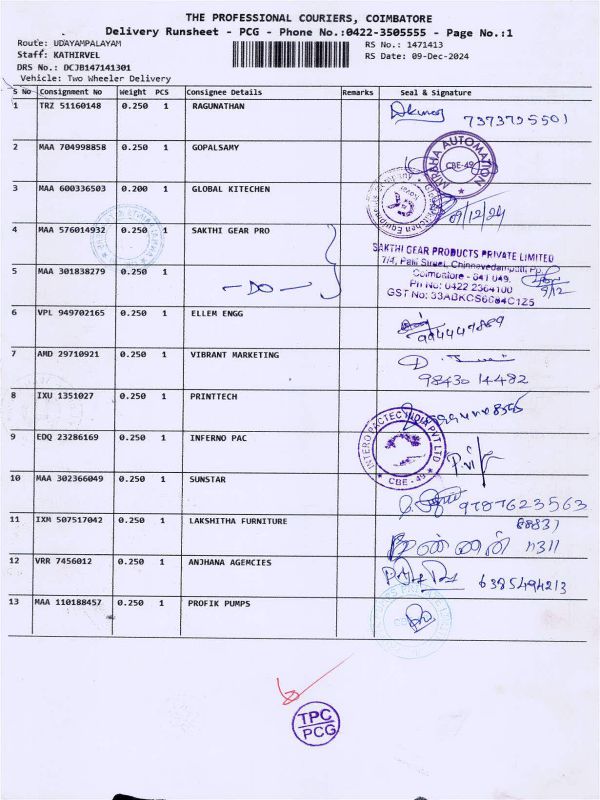 THE PROFESSIONAL COURIERS, COIMBATORE
Delivery Runsheet - PCG - Phone No.:0422-3505555 - Page No.:1
Route: UDAYAMPALAYAM
RS No.: 1471413
Staff: KATHIRVEL
RS Date: 09-Dec-2024
DRS No.: DCJB147141301
Vehicle: Two Wheeler Delivery
S No Consignment No Weight PCS Consignee Details Remarks Seal & Signature
1 TRZ 51160148 0.250 1 RAGUNATHAN
7373735501
2 MAA 704998858 0.250 1 GOPALSAMY
MIRAHA AUTOMATION CBE-49
3 MAA 600336503 0.200 1 GLOBAL KITECHEN
09/12/24
4 MAA 576014932 0.250 1 SAKTHI GEAR PRO
SAKTHI GEAR PRODUCTS PRIVATE LIMITED
7/4, Palli Street, Chinnavedampatti Po,
Coimbatore - 641 049.
Ph No: 0422 2364100
9/12
5 MAA 301838279 0.250 1 - DO -
6 VPL 949702165 0.250 1 ELLEM ENGG
7 AMD 29710921 0.250 1 VIBRANT MARKETING
98430 14482
8 IXU 1351027 0.250 1 PRINTTECH
9 EDQ 23286169 0.250 1 INFERNO PAC
CBE - 49
10 MAA 302366049 0.250 1 SUNSTAR
9787623563
11 IXM 507517042 0.250 1 LAKSHITHA FURNITURE
88831
11311
12 VRR 7456012 0.250 1 ANJHANA AGEMCIES
6385494213
13 MAA 110188457 0.250 1 PROFIK PUMPS
TPC
PCG